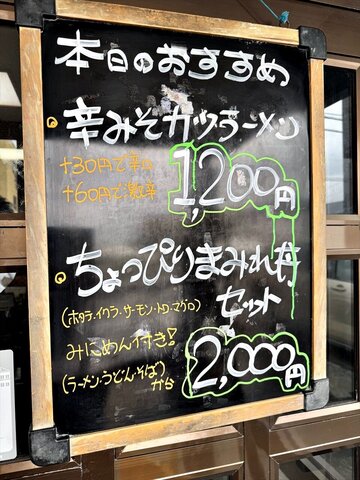 本日のおすすめ
辛みそカツラーメン
+30円で辛々
+60円で激辛
1,200円
ちょっぴりまみれ丼
セット
(ホタテ・イクラ・サーモン・トロ・マグロ)
みにめん付き!
(ラーメン・うどん・そば)
から
2,000円